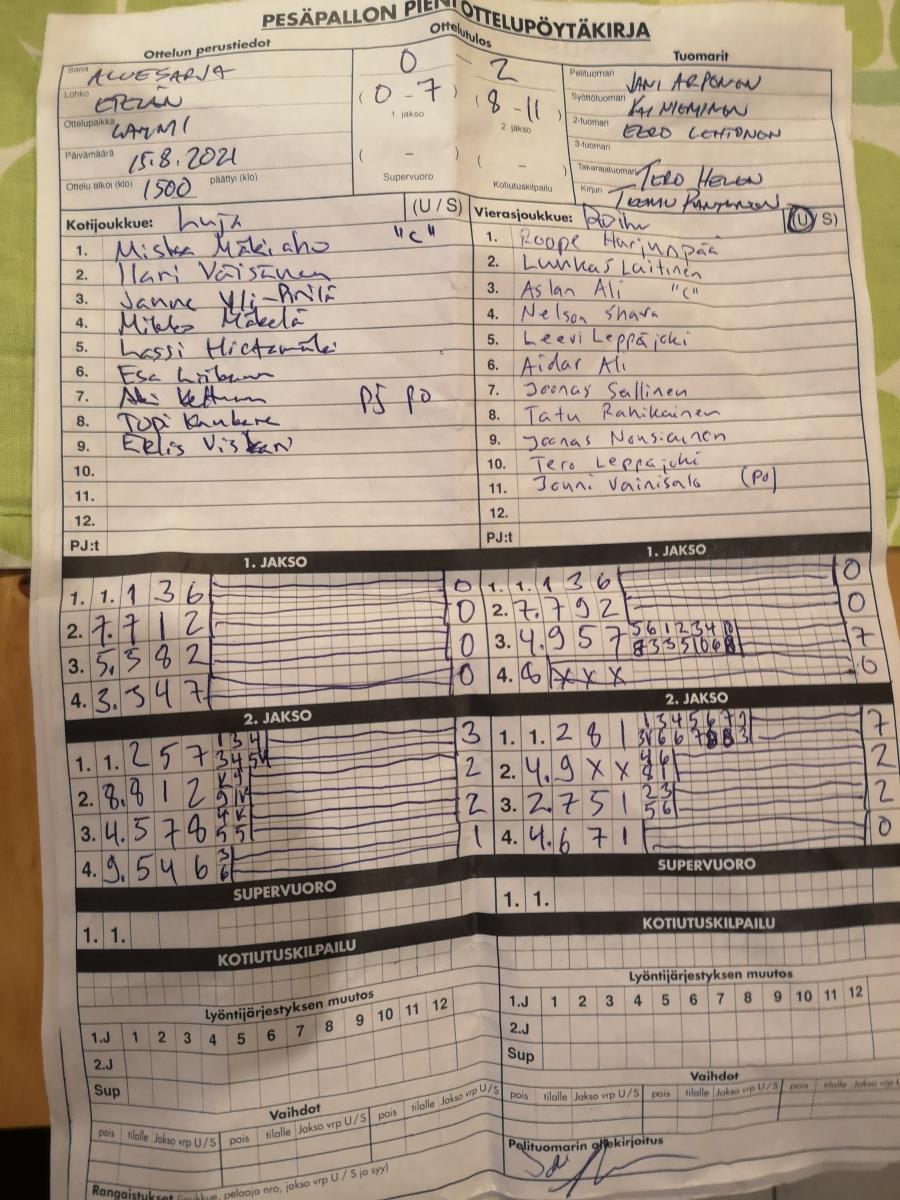 PESÄPALLON PIENOTTELUPÖYTÄKIRJA
Ottelun perustiedot
Ottelutulos
Tuomarit
Sarja ALUESARJA
Lohko ETELÄN
Ottelupaikka LAMMI
Päivämäärä 15.8.2021
Ottelu alkoi (klo) 1500 päättyi (klo)
0 - 2
(0-7) (8-11)
1. jakso 2. jakso
( - ) ( - )
Supervuoro Kotiutuskilpailu
Pelituomari JANI ARPONEN
Syöttötuomari KAI NIEMINEN
2-tuomari EERO LEHTONEN
3-tuomari
Takarajatuomari TERO HELEN
Kirjuri TEEMU PANTONEN
Kotijoukkue: Luja (U / S)
1. Miska Mäkiaho "C"
2. Ilari Väisänen
3. Janne Yli-Prilä
4. Mikko Mäkelä
5. Lassi Hietamäki
6. Esa
7. Aki Kettunen PJ PO
8. Topi
9. Eelis
10.
11.
12.
PJ:t
Vierasjoukkue: Roihu (U / S)
1. Roope Harjunpää
2. Luukas Laitinen
3. Aslan Ali "C"
4. Nelson Shava
5. Leevi Leppäjoki
6. Aidar Ali
7. Joonas Sallinen
8. Tatu Rahikainen
9. Joonas Nousiainen
10. Tero Leppäjoki
11. Jouni Vainisalo (PO)
12.
PJ:t
1. JAKSO
1. 1. 1 3 6 0
2. 7. 7 1 2 0
3. 5. 5 8 2 0
4. 3. 3 4 7 0
1. JAKSO
1. 1. 1 3 6 0
2. 7. 7 9 2 0
3. 4. 9 5 7 7
4. 8 x x x 0
2. JAKSO
1. 1. 2 5 7 3
2. 8. 8 1 2 2
3. 4. 5 7 8 2
4. 9. 5 4 6 1
2. JAKSO
1. 1. 2 8 1 7
2. 4. 9 x x 2
3. 2. 7 5 1 2
4. 4. 6 7 1 0
SUPERVUORO
1. 1.
SUPERVUORO
1. 1.
KOTIUTUSKILPAILU
KOTIUTUSKILPAILU
Lyöntijärjestyksen muutos
1.J 1 2 3 4 5 6 7 8 9 10 11 12
2.J
Sup
Lyöntijärjestyksen muutos
1.J 1 2 3 4 5 6 7 8 9 10 11 12
2.J
Sup
Vaihdot
pois tilalle Jakso vrp U / S pois tilalle Jakso vrp U / S pois tilalle Jakso vrp U / S
Vaihdot
pois tilalle Jakso vrp U / S pois tilalle Jakso vrp U / S pois tilalle Jakso vrp U
Pelituomarin allekirjoitus
Rangaistukset (joukkue, pelaaja nro, jakso vrp U / S ja syy)